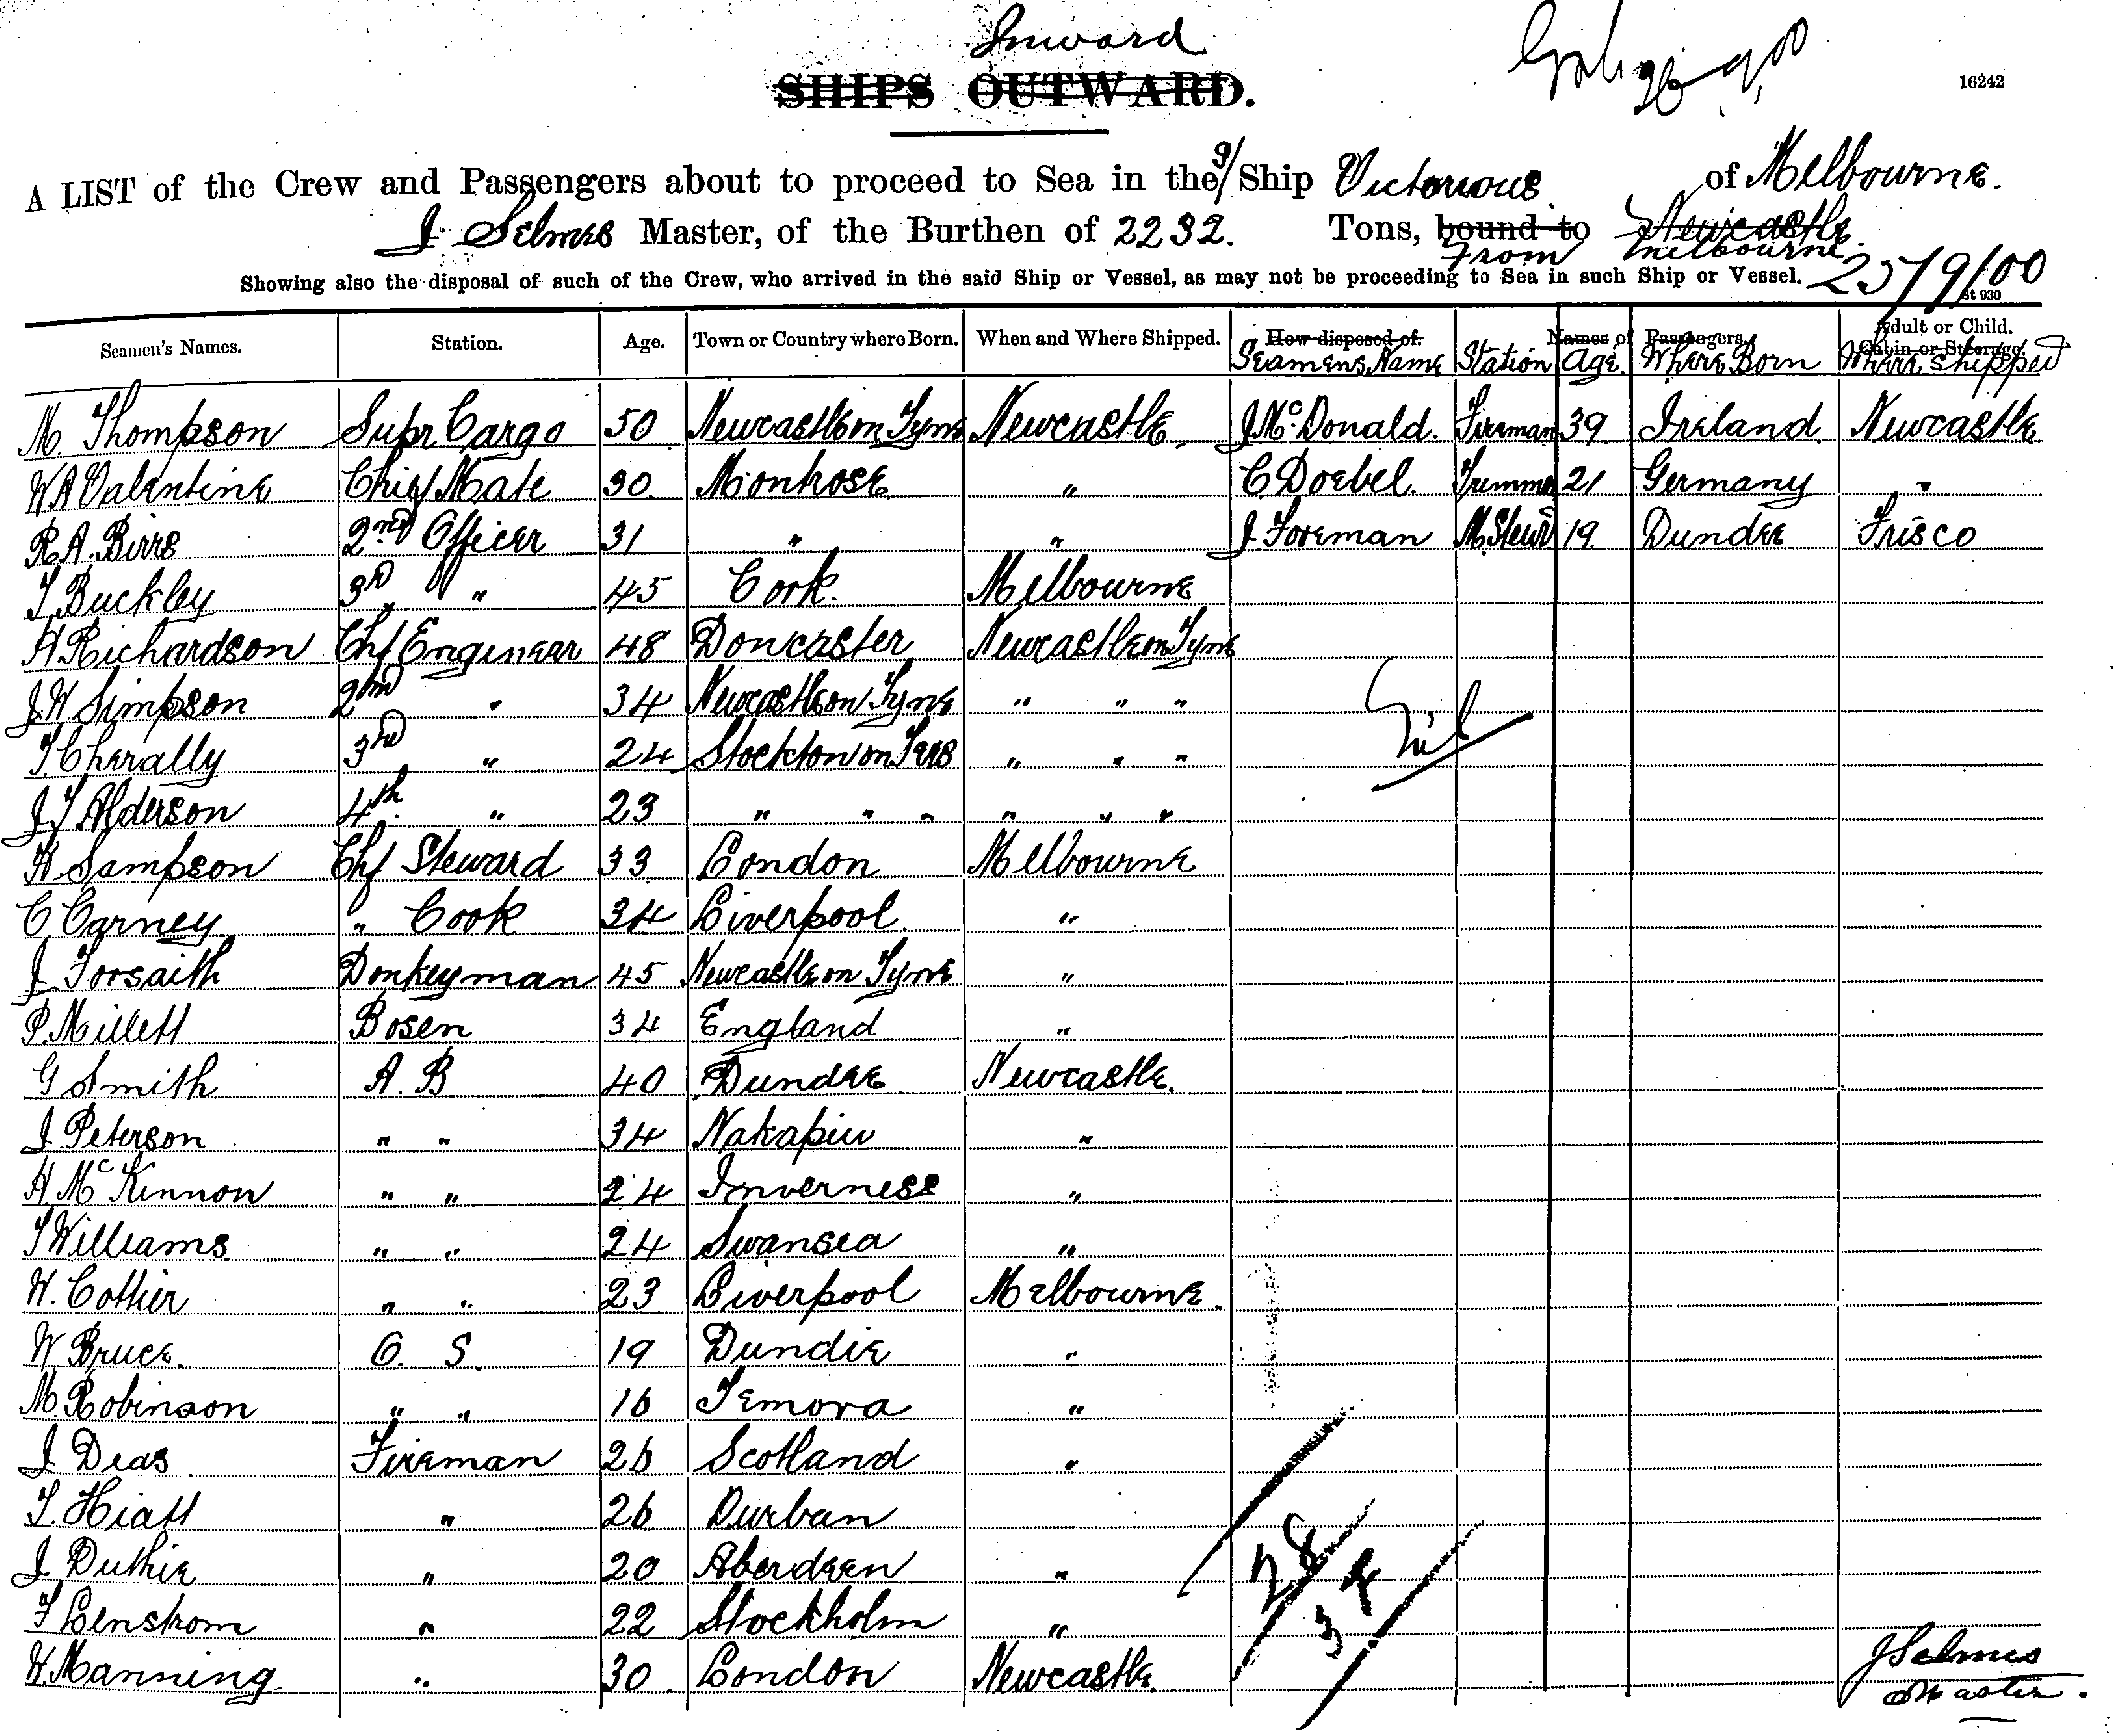 Inward
SHIPS OUTWARD.
16242
A LIST of the Crew and Passengers about to proceed to Sea in the S/ Ship Victorious of Melbourne.
J Selmes Master, of the Burthen of 2232. Tons, bound to Newcastle
From Melbourne
Showing also the disposal of such of the Crew, who arrived in the said Ship or Vessel, as may not be proceeding to Sea in such Ship or Vessel. 25/9/00
St 930
Seamen's Names. Station. Age. Town or Country where Born. When and Where Shipped. How disposed of. Names of Passengers. Adult or Child. Cabin or Steerage.
Seamens Name Station Age Where Born Where shipped
M. Thompson Supr Cargo 50 Newcastle on Tyne Newcastle J McDonald. Fireman 39 Ireland Newcastle
W A Valentine Chief Mate 30 Montrose " C Doebel. Trimmer 21 Germany "
R. A. Birrs 2nd Officer 31 " " J. Foreman M. Stewd 19 Dundee Frisco
T Buckley 3rd " 45 Cork. Melbourne
H Richardson Chf Engineer 48 Doncaster Newcastle on Tyne
J. W Simpson 2nd " 34 Newcastle on Tyne " " "
T. Cherally 3rd " 24 Stockton on Tees " " "
J T Alderson 4th " 23 " " " " " "
H Sampson Chf Steward 33 London Melbourne
C Carney " Cook 34 Liverpool "
J Forsaith Donkeyman 45 Newcastle on Tyne "
P. Millett Bosen 34 England "
G Smith A. B 40 Dundee Newcastle.
J Peterson " " 34 "
H. McKinnon " " 24 Inverness "
T Williams " " 24 Swansea "
W. Cottier " " 23 Liverpool Melbourne
W Bruce. O. S. 19 Dundie "
M. Robinson " " 16 Temora "
J Deas Fireman 26 Scotland "
T. Hiatt " 26 Durban
J Duthie " 20 Aberdeen "
F Lenstrom " 22 Stockholm "
W. Manning " 30 London Newcastle.
Nil
28
34
J Selmes
Master.